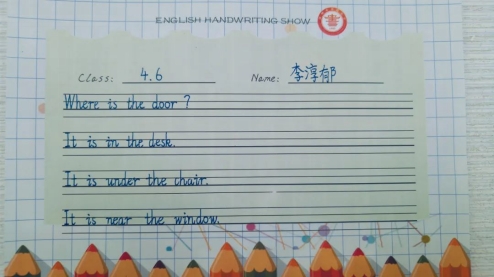 ENGLISH HANDWRITING SHOW
Class: 4.6 Name: 李淳郁
Where is the door ?
It is in the desk.
It is under the chair.
It is near the window.